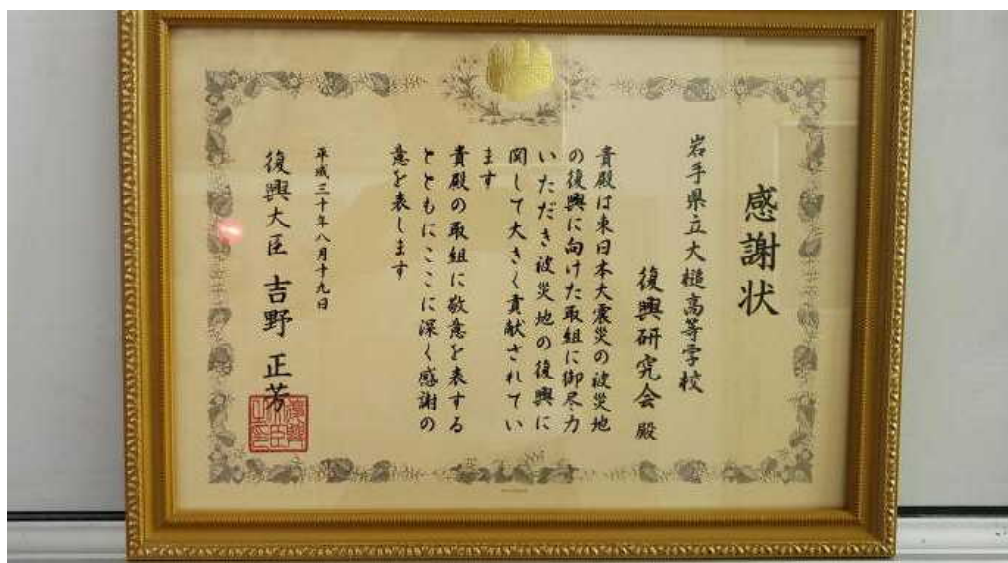 感謝状
岩手県立大槌高等学校
復興研究会殿
貴殿は東日本大震災の被災地
の復興に向けた取組に御尽力
いただき被災地の復興に
関して大きく貢献されてい
ます
貴殿の取組に敬意を表する
とともにここに深く感謝の
意を表します
平成三十年八月十九日
復興大臣 吉野 正芳
復興大臣之印